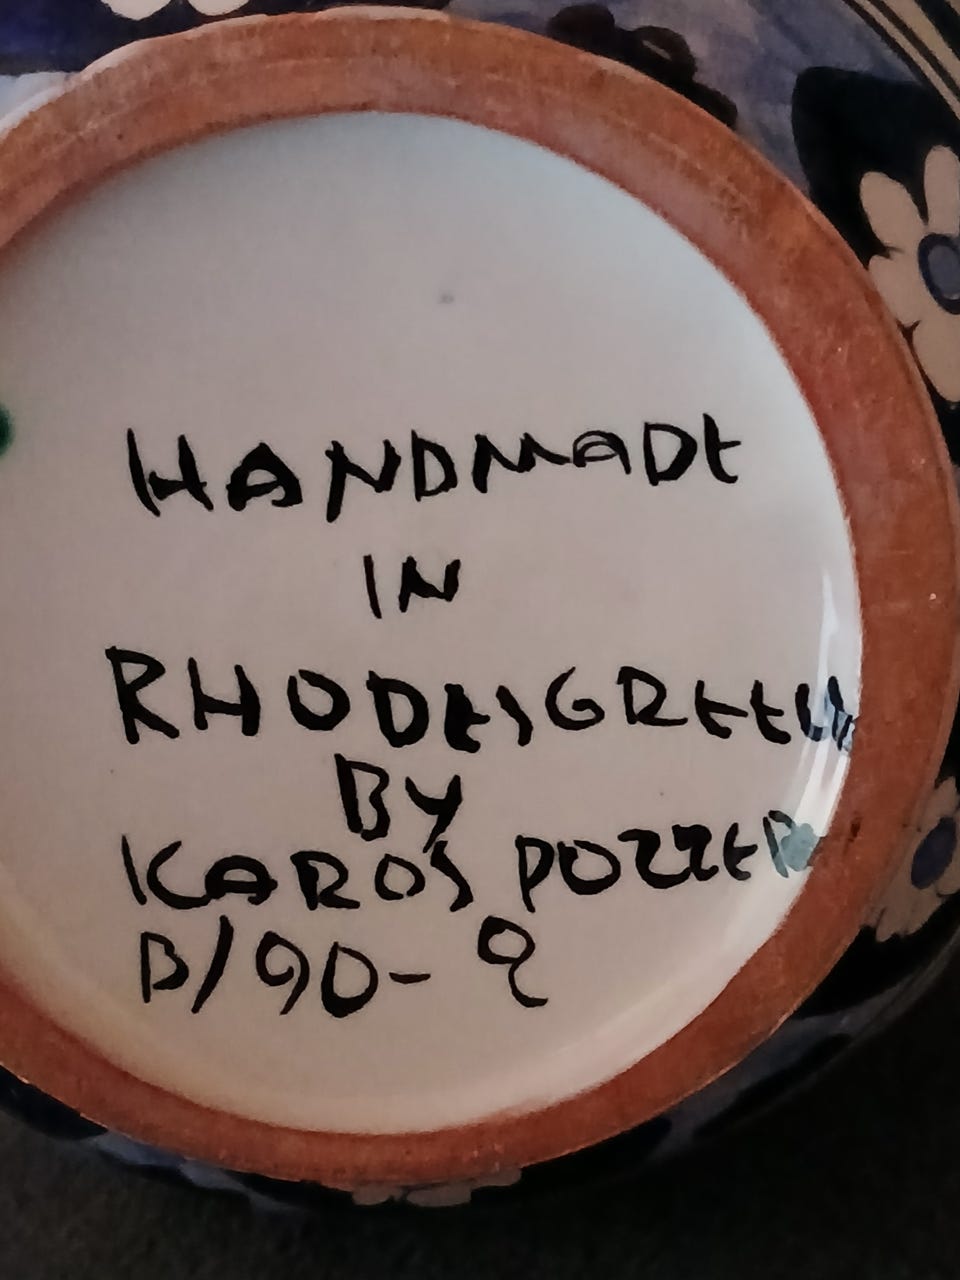 HANDMADE
IN
RHODESGREECE
BY
KAROS POZZER
B/90-